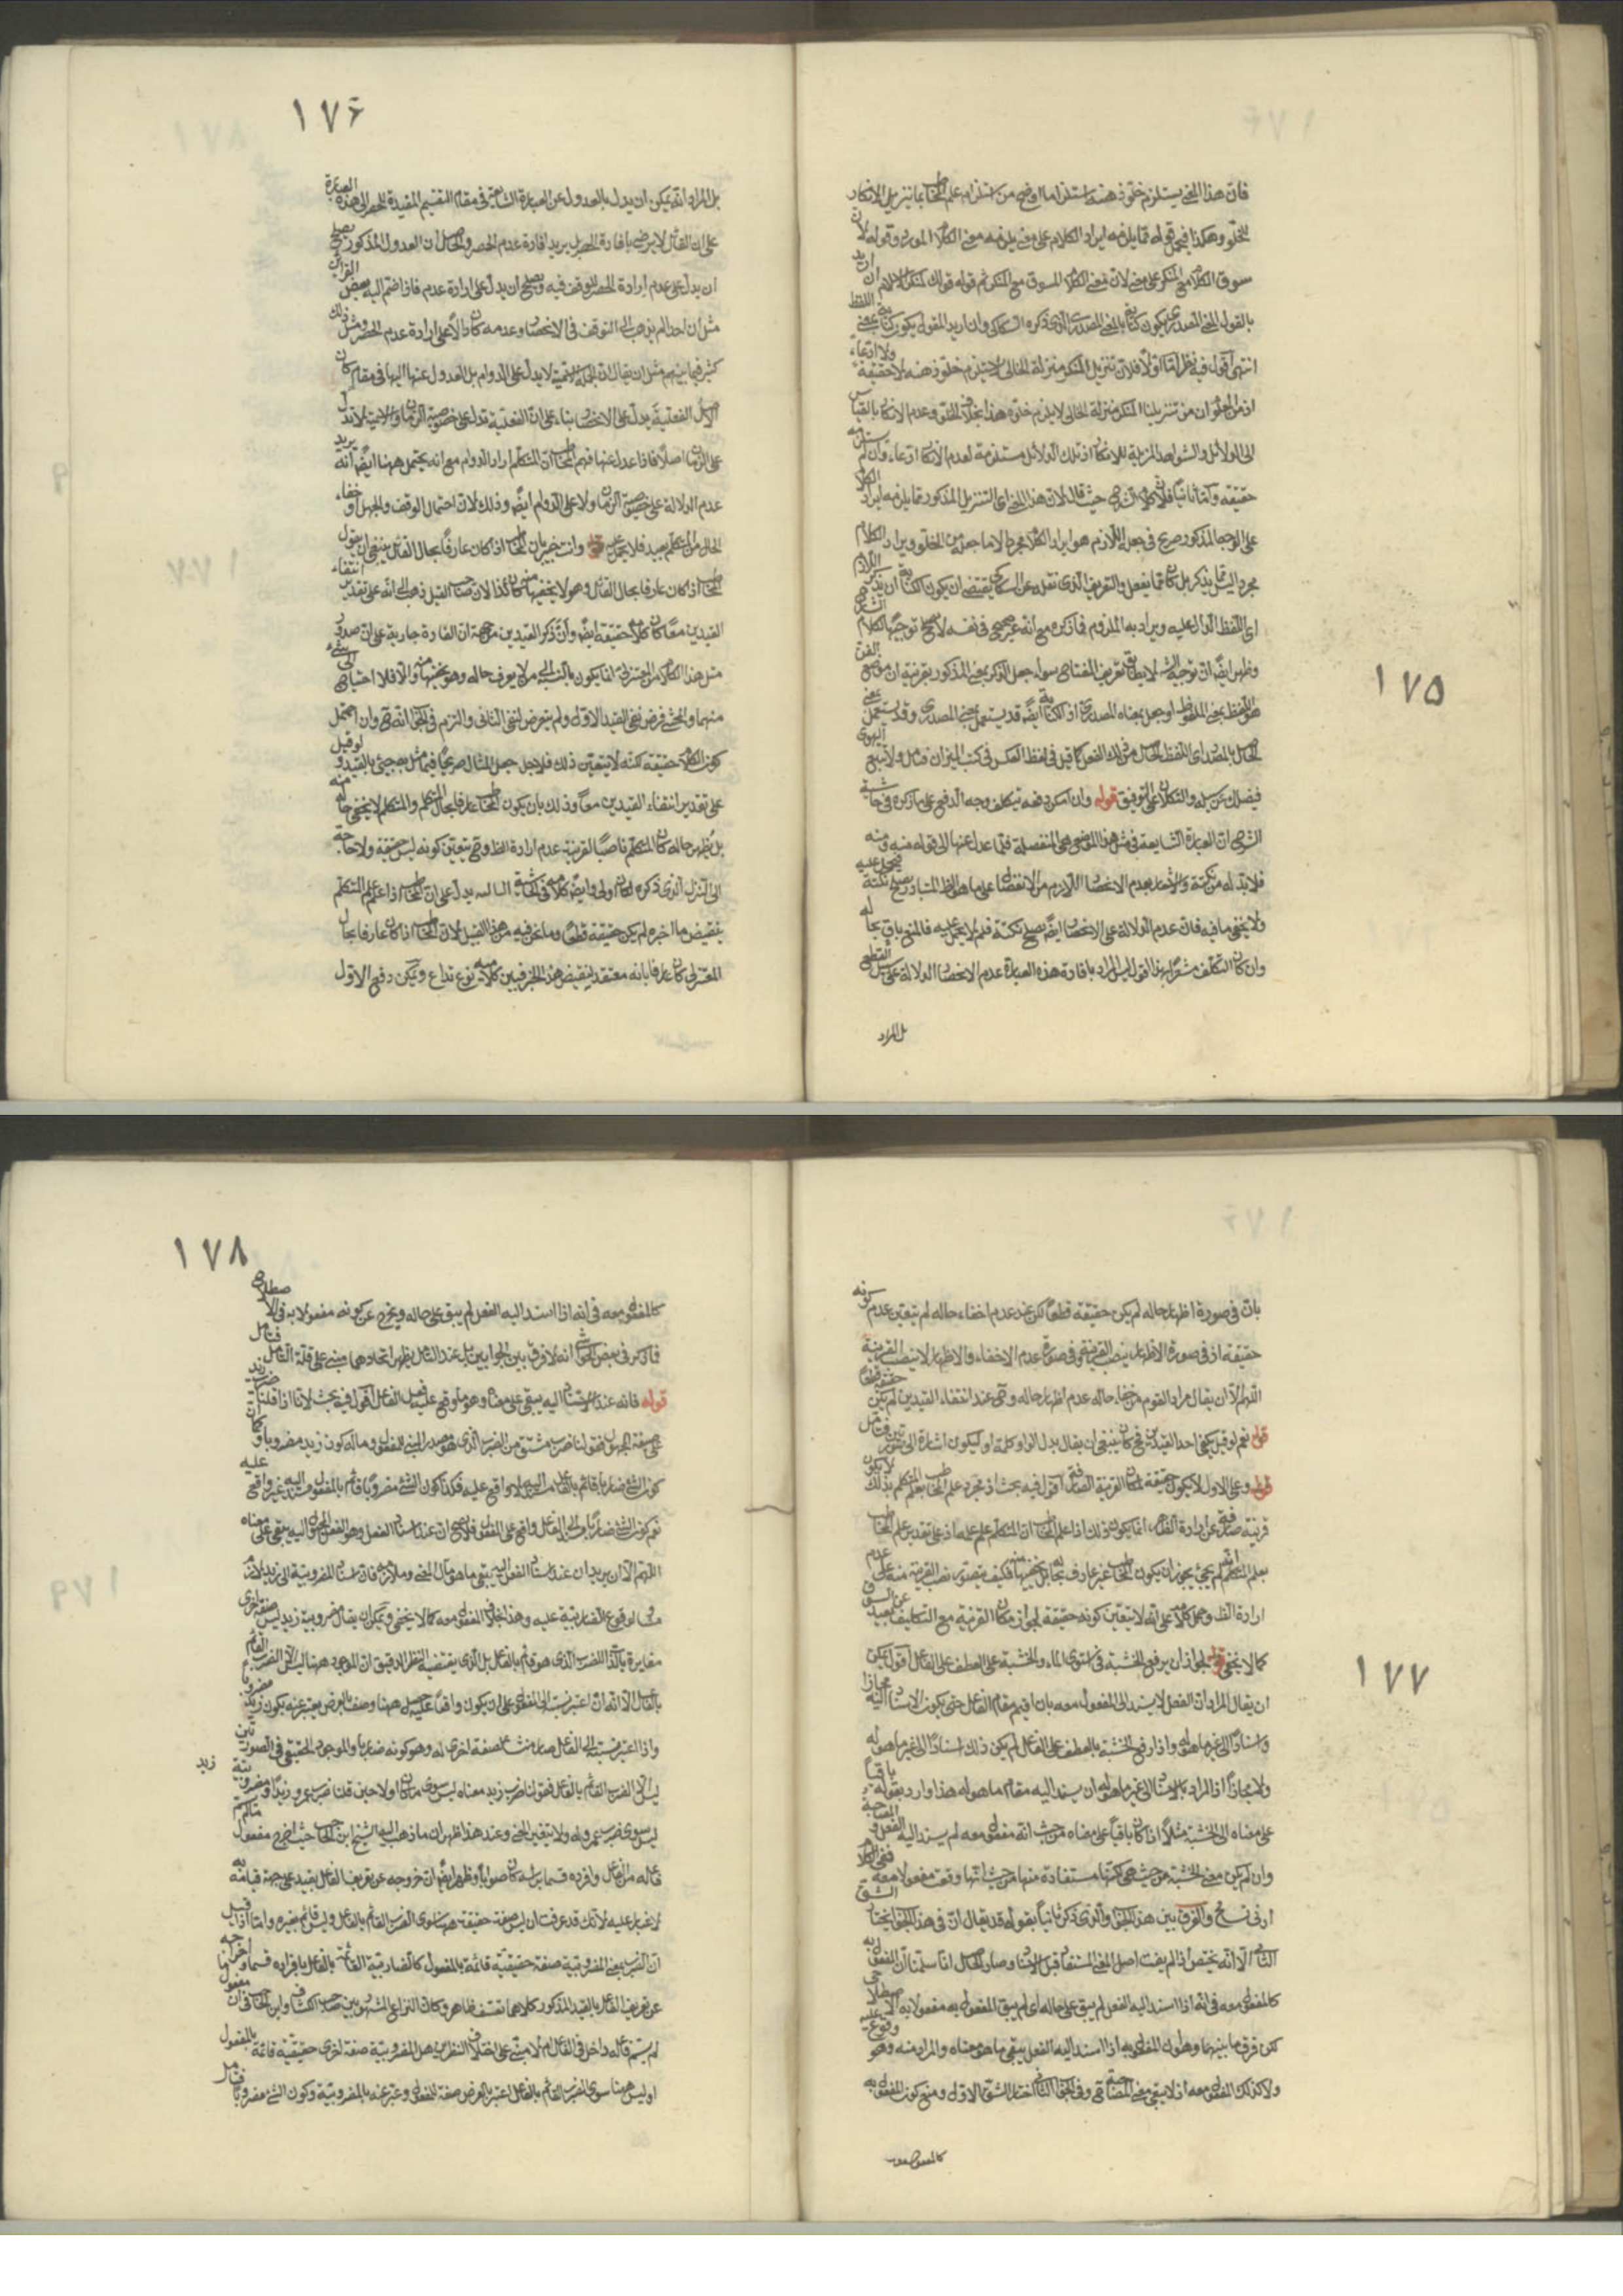 ١٧٥
فان هذا المعنى يستلزم خلو ذهنه استلزاما اوضح من استلزام علم المخاطب بما نزيل الانكار
للخلو وهكذا فيحمل قوله مما يلزمه ايراد الكلام على معنى يلزمه معنى الكلام المورد وقوله لان
سوق الكلام مع المنكر على معنى لان معنى الكلام المسوق مع المنكر ثم قوله قولك لمنكر الاسلام ان اريد
بالقول المعنى المصدرى يكون كناية بالمعنى المصدرى الذى ذكره السكاكى وان اريد المقول يكون كناية بمعنى اللفظ
انتهى اقول فيه نظر اما اولا فلان تنزيل المنكر منزلة الخالى لا يستلزم خلو ذهنه لا حقيقة ولا ادعاء
اذ من المعلوم ان من تنزيلنا المنكر منزلة الخالى لا يلزم خلوه هذا بخلاف الخلو وعدم الانكار بالقياس
الى الدلائل والشواهد المزيلة للانكار اذ تلك الدلائل مستلزمة لعدم الانكار ادعاء وان لم يستلزمه
حقيقة واما ثانيا فلان كلام الشارح حيث قال لان هذا المعنى اى التنزيل المذكور مما يلزمه ايراد الكلام
على الوجه المذكور صريح فى جعله اللازم هو ايراد الكلام مجردا لا ما جعله من الخلو ويراد الكلام
مجرد اليتما يذكر بل كان مما يفعل والتعريف الذى نقله عن السكاكى يقتضى ان يكون الكناية ان يذكر اللازم
اى اللفظ الدال عليه ويراد به الملزوم فما ذكره مع انه غير صحيح فى نفسه لا يصلح توجيها لكلام الشارح
وظهر ايضا ان توجيه الشارح لا يطابق تعريف المفتاح سواء جعل الذكر بمعنى المذكور بقرينة ان موضوع الفن
هو اللفظ بمعنى الملفوظ او جعل بمعناه المصدرى اذ الكناية ايضا قد يستعمل بمعنى المصدرى وقد يستعمل بمعنى
الحاصل بالمصدر اى اللفظ الحاصل من ذلك الفعل كما قيل فى لفظ العكس فى كتب الميزان فتأمل ولا تتبع الهوى
فيضلك عن سبيله والتكلان على التوفيق قوله وان امكن دفعه بتكلف وجه الدفع على ما ذكره فى حاشية
الشرح ان العبارة الشايعة فى مثل هذا الموضع هى المنفصلة فلما عدل عنها الى قوله منه ومنه
فلا بد له من نكتة والاشعار بعدم الانحصار اللازم من الانفصال على ما هو الظ المتبادر يصلح نكتة فيحمل عليه
ولا يخفى ما فيه فان عدم الدلالة على الانحصار ايضا يصلح نكتة فلم لا يحمل عليه فالمنع باق بحاله
وان كان التكلف مشعرا بهذا اقول ليس المراد بافادة هذه العبارة عدم الانحصار الدلالة على سبيل القطع
بل المراد
١٧۶
بل المراد انه يمكن ان يدل بالعدول عن العبارة الشايعة فى مقام التقسيم المفيدة للحصر الى هذه العبارة
على ان القائل لا يرضى بافادة الحصر بل يريد افادة عدم الحصر والحاصل ان العدول المذكور يصلح
ان يدل على عدم ارادة الحصر للتوقف فيه ويصلح ان يدل على ارادة عدم فاذا ضم اليه بعض القرائن
مثل ان احدا لم يذهب الى التوقف فى الانحصار وعدمه كان دالا على ارادة عدم الحصر ومثل ذلك
كثير فيما بينهم مثل ان يقال ان الجملة الاسمية لا يدل على الدوام بل العدول عنها اليها فى مقام كان
الاصل الفعلية يدل على الاختصاص بناء على ان الفعلية تدل على خصوصية الزمان والاسمية لا تدل
على الزمان اصلا فاذا عدل عنها فهم المخاطب ان المتكلم اراد الدوام مع انه يحتمل ههنا ايضا انه يريد
عدم الدلالة على خصوصية الزمان ولا على الدوام ايضا وذلك لان احتمال التوقف والجهل او خفاء
الحال من المتكلم بعيد فلا يحمل عليه قوله وانت خبير بان المخاطب اذا كان عارفا بحال القائل ينبغى ان يقول
المخاطب اذا كان عارفا بحال القائل وهو لا يخفيها منه كان كذا لان صاحب القيل ذهب الى انه على تقدير انتفاء
القيدين معا كان كلاما حقيقة ايضا وان ذكر القيدين من جهة ان العادة جارية على ان صدور
مثل هذا الكلام من المعتزلى انما يكون بالنسبة الى من لا يعرف حاله وهو يخفيها منه والا فلا احتياج الى شئ
منهما والمحشى فرض نفى القيد الاول ولم يتعرض لنفى الثانى والتزم فى المخاطب انه هى وان احتمل
كون الكلام حقيقة لكنه لا يتعين ذلك فلاجل جعل المثال صريحا فيما مثل به جيئ بالقيد ولو قيل
على تقدير انتفاء القيدين معا وذلك بان يكون المخاطب عارفا بحال المتكلم والمتكلم لا يخفى حاله منه
بل يظهر حاله كان المتكلم ناصبا لقرينة عدم ارادة الظ وهى يتعين كونه ليس حقيقة ولا حاجة
الى التنزل الذى ذكره لكان اولى وايضا كلامه فى الحاشية السالفة يدل على ان المخاطب اذا علم علم المتكلم
بنقيض ما اخبره لم يكن حقيقة قطعا وما نحن فيه من هذا القبيل لان المخاطب اذا كان عارفا بحال
المعتزلى كان عارفا بانه معتقد لنقيض هذا الخبر فبين كلاميه نوع تدافع ويمكن دفع الاول
١٧٧
بان فى صورة اظهار حاله لم يكن حقيقة قطعا لكن عند عدم اخفاء حاله لم يتعين عدم كونه
حقيقة اذ فى صورة الاظهار ينصب القرينة وفى صورة عدم الاخفاء والاظهار لا ينصب القرينة
اللهم الا ان يقال مراد القوم من خفاء حاله عدم اظهار حاله وهى عند انتفاء القيدين لم يكن حقيقة قطعا
قوله نعم لو قيل يكفى احد القيدين فح كان ينبغى ان يقال بدل الواو كلمة او ليكون اشارة الى تصويرين فتأمل
قوله وعلى الاول لا يكون حقيقة لمكان القرينة الصارفة اقول فيه بحث اذ مجرد علم المخاطب بعلم المتكلم بذلك لا يكون
قرينة صارفة عن ارادة الظاهر انما يكون ذلك اذا علم المخاطب ان المتكلم علم علمه اذ على تقدير علم المخاطب
بعلم المتكلم يجوز ان يكون المخاطب غير عارف بحاله بل يخفيها منه فكيف يتصور نصب القرينة منه على عدم
ارادة الظ وحمل كلامه على انه لا يتعين كونه حقيقة لجواز مكان القرينة مع التكليف بعيد عن السوق
كما لا يخفى قوله لجواز ان يرفع الخشبة فى استوى الماء والخشبة على العطف على الفاعل اقول يمكن
ان يقال المراد ان الفعل لا يسند الى المفعول معه بان اقيم مقام الفاعل حتى يكون الاسناد اليه مجازا
واسنادا الى غير ما هو له واذا رفع الخشبة بالعطف على الفاعل لم يكن ذلك اسنادا الى غير ما هو له
ولا مجازا اذ المراد بالاسناد الى غير ما هو له ان يسند اليه مقام ما هو له هذا وارد بقوله باقيا
على معناه الى الخشبة مثلا اذا كان باقيا على معناه من حيث انه مفعول معه لم يسند اليه الفعل و المصاحبة
وان لم يكن معنى الخشبة من حيث هى لكنها مستفادة منها من حيث انها وقعت مفعولا معه ففى الكلام
ادنى تسامح والفرق بين هذا الجواب والذى ذكر ثانيا بقوله قد يقال ان فى هذا الجواب يختار الشق
الثانى الا انه يختص اذا لم يفت اصل المعنى المستفاد قبل الاسناد وصار الحاصل انا سلمنا ان المفعول به
كالمفعول معه فى انه اذا اسند اليه الفعل لم يبق على حاله اى لم يبق المفعول به مفعولا به الاصطلاحى
لكن فرق ما بينهما وهو ان المفعول به اذا اسند اليه الفعل يبقى ما هو معناه والمراد منه وهو وقوع عليه
ولا كذلك المفعول معه اذ لا يبقى معنى المصاحبة وفى الجواب الثانى اختار الشق الاول ومنع كون المفعول به
كالمفعول معه
١٧٨
كالمفعول معه فى انه اذا اسند اليه الفعل لم يبق على حاله ويخرج عن كونه مفعولا به فى الاصطلاح
فما ذكر فى بعض الحواشى انه لا فرق بين الجوابين بل عند التأمل يظهر اتحادهما مبنى على قلة التأمل فتأمل
قوله فانه عند الاسناد اليه يبقى على معناه وهو ما وقع عليه فعل الفاعل اقول فيه بحث لانا اذا قلنا ضرب زيد
على صيغة المجهول فقولنا ضرب مشتق من الضرب الذى هو مصدر المبنى للمفعول وماله كون زيد مضروبا وكما ان
كون الشئ ضاربا قائم بالفاعل مسند اليه لا واقع عليه فكذا كون الشئ مضروبا قائم بالمفعول مسند اليه غير واقع عليه
نعم كون الشئ ضاربا مسند الى الفاعل واقع على المفعول فلا يصح ان عند اسناد الفعل وهو الفعل المجهول اليه يبقى على معناه
اللهم الا ان يريد ان عند اسناد الفعل اليه يبقى ما هو مآل المعنى وملازمه فان اسناد المضروبية الى زيد يلازم
مساو لوقوع الضاربية عليه وهذا بخلاف المفعول معه كما لا يخفى ويمكن ان يقال مضروبية زيد ليس صفة اخرى
مغايرة بالذات للضرب الذى هو قائم بالفاعل بل الذى يقتضيه النظر الدقيق ان الموجود ههنا ليس الا الضرب القائم
بالفاعل الا انه ان اعتبر نسبته الى المفعول على ان يكون واقعا عليه حصل ههنا وصف بالعرض يعبر عنه بكون زيد مضروبا
واذا اعتبر نسبته الى الفاعل صار منشأ لصفة اخرى له وهو كونه ضاربا والموجود الحقيقى فى الصورتين
ليس الا الضرب القائم بالفاعل فقولنا ضرب زيد معناه ليس سوى ما كان اولا حين قلنا ضرب عمرو زيدا ومضروبية زيد
ليس سوى ضرب عمرو له ولا يتغير المعنى وعند هذا ظهر ان ما ذهب اليه الشيخ ابن الحاجب حيث اخرج مفعول ما لم يسم
فاعله من الفاعل وافرده قسما برأسه كان صوابا وظهر ايضا ان خروجه عن تعريف الفاعل بقيد على جهة قيامه به
لا غبار عليه لانك قد عرفت ان ليس صفة حقيقة ههنا سوى الضرب القائم بالفاعل وليس قائم بغيره واما اذا قيل
ان الضرب بمعنى المضروبية صفة حقيقية قائمة بالمفعول كالضاربية القائمة بالفاعل بافراده قسما واخراجه
عن تعريف الفاعل بالقيد المذكور كلاهما تعسف ظاهر وكان النزاع المشهور بين صاحب الكشاف وابن الحاجب فى ان مفعول ما
لم يسم فاعله داخل فى الفاعل ام لا مبنى على اختلاف النظرين هل المضروبية صفة اخرى حقيقية قائمة بالمفعول
او ليس ههنا سوى الضرب القائم بالفاعل اعتبر بالعرض صفة للمفعول وعبر عنه بالمضروبية وكون الشئ مضروبا فتأمل